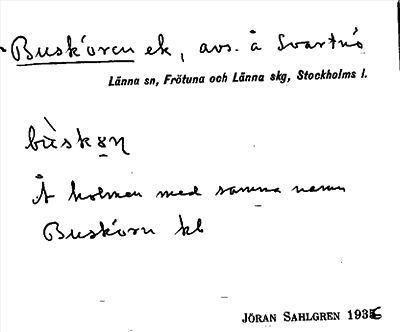 Buskören ek, avs. å Svartnö
Länna sn, Frötuna och Länna skg, Stockholms l.
bùskạn
Å holmen med samma namn
Buskörn kl
JÖRAN SAHLGREN 1936